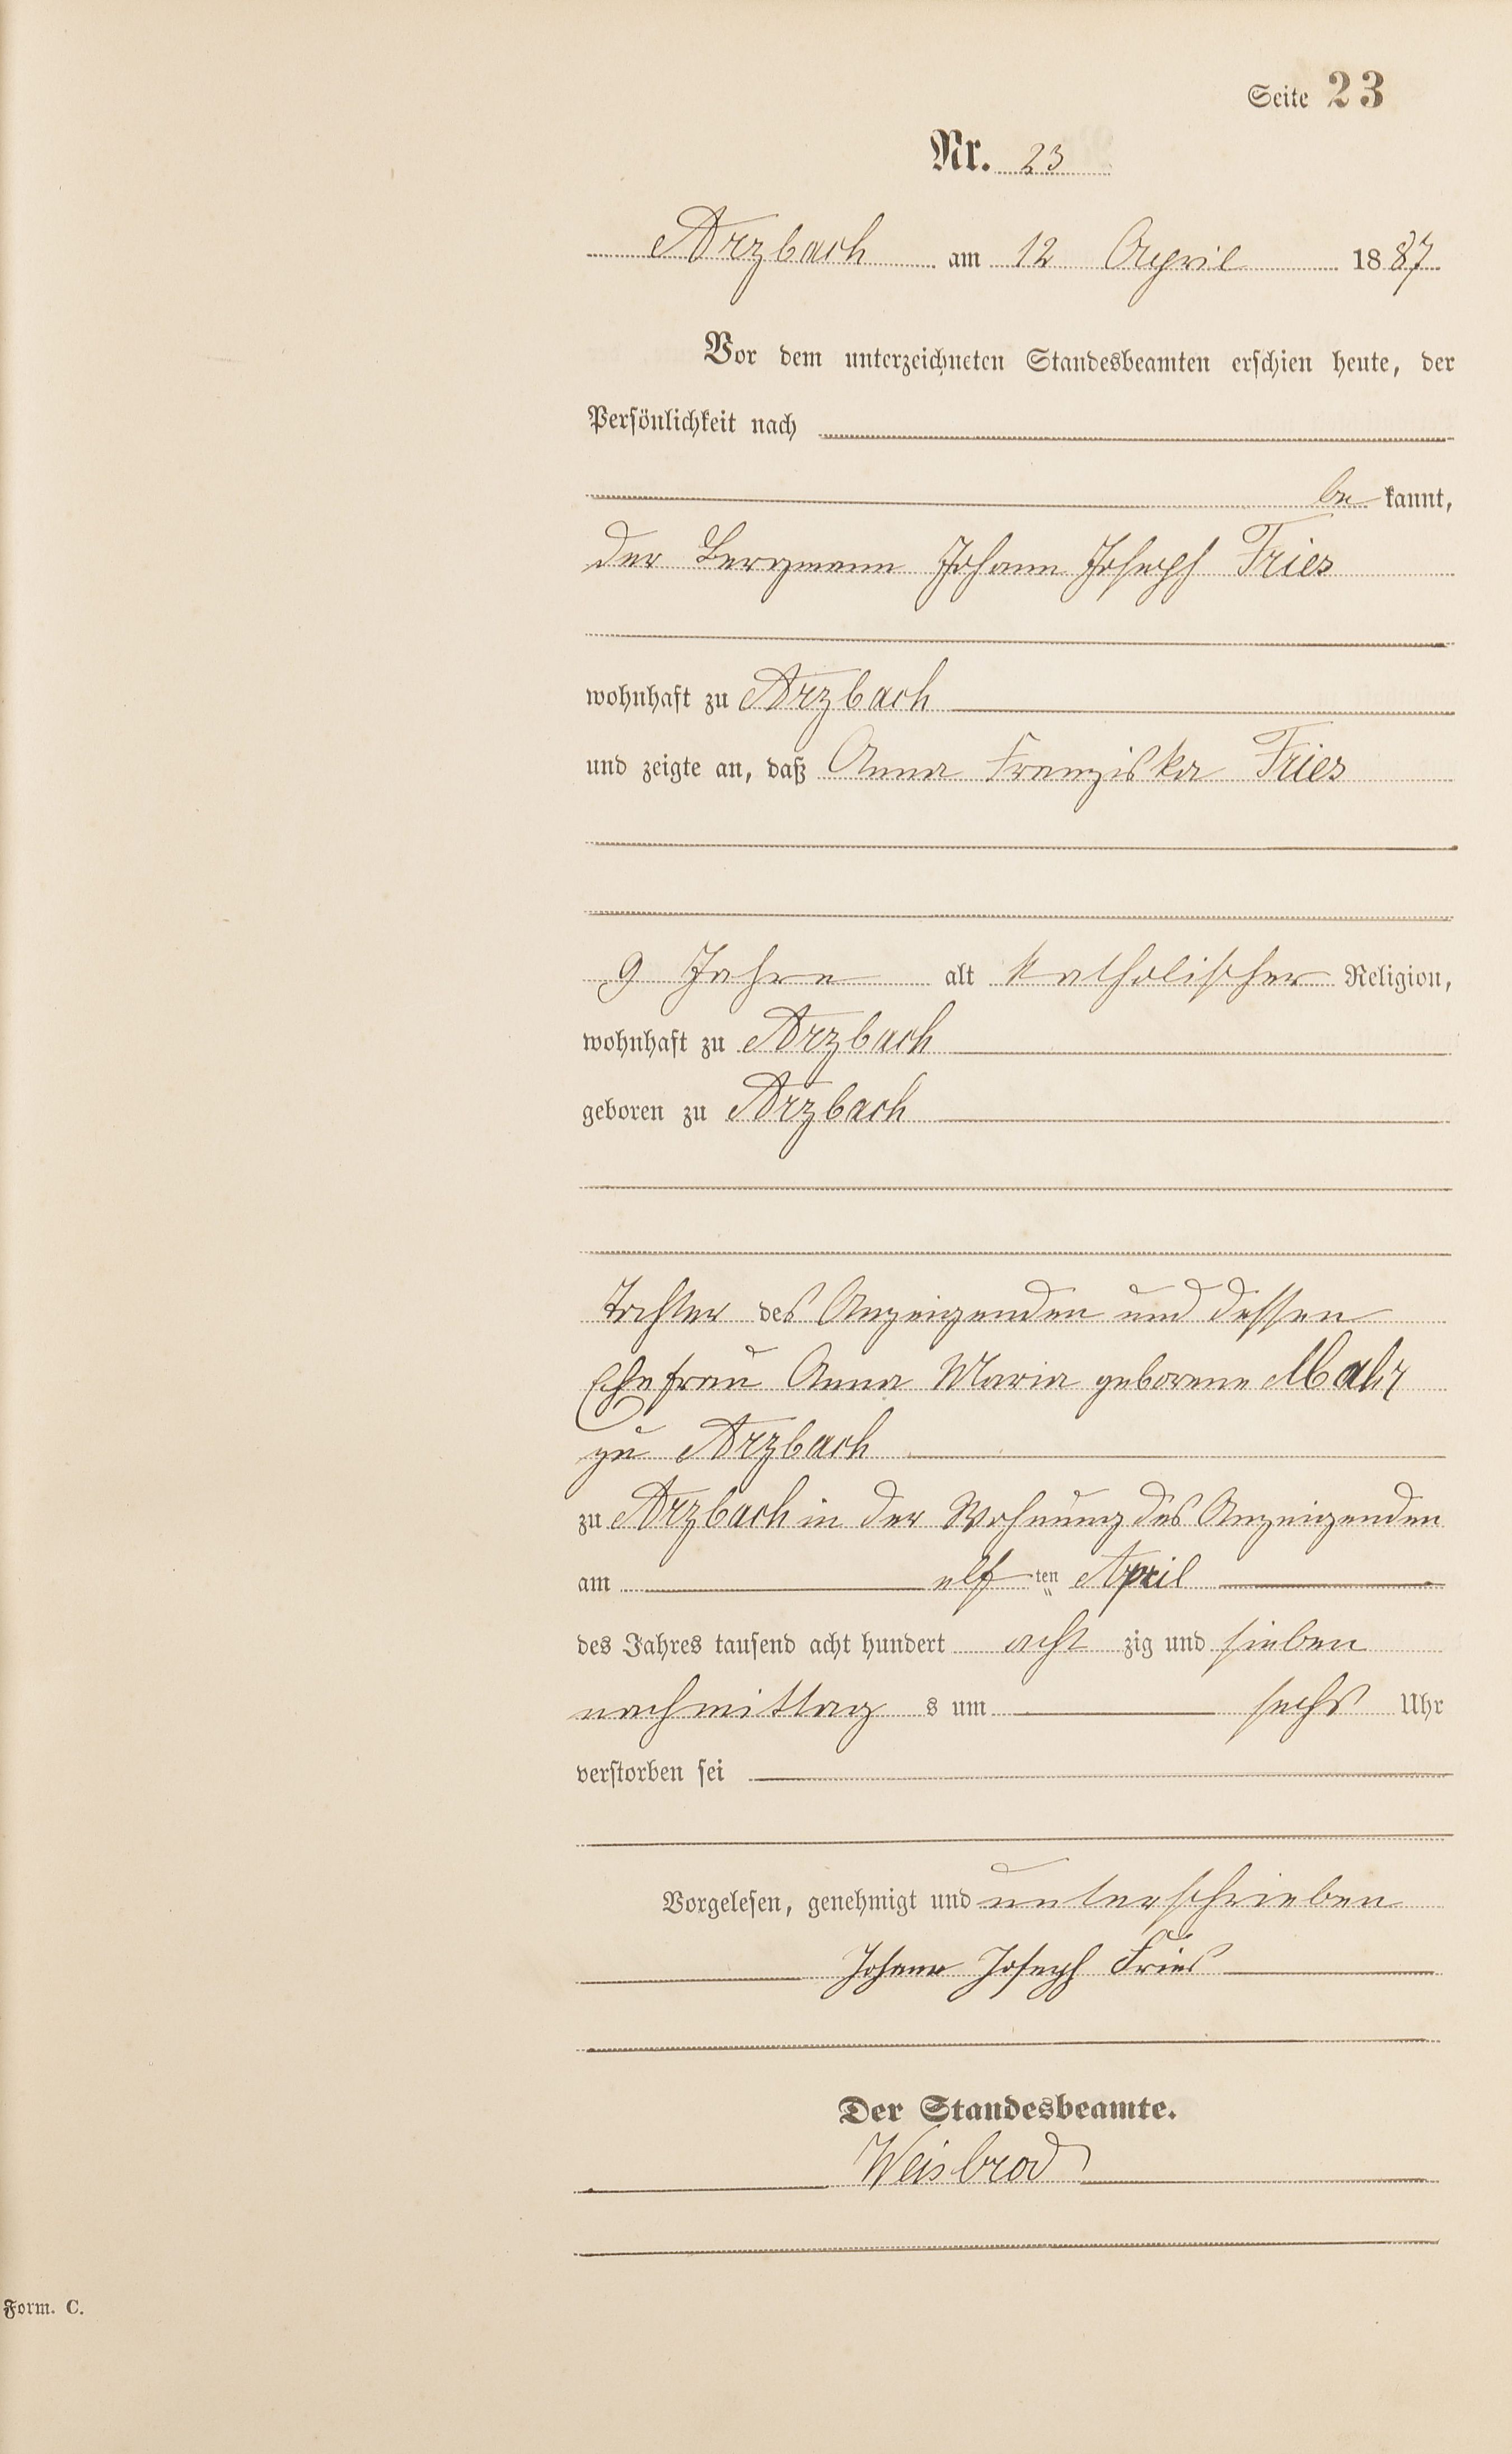 Seite 23
Nr. 23
Arzbach am 12 April 1887
Vor dem unterzeichneten Standesbeamten erschien heute, der
Persönlichkeit nach
be kannt,
der Bergmann Johann Joseph Fries
wohnhaft zu Arzbach
und zeigte an, daß Anna Franziska Fries
9 Jahre alt katholischer Religion,
wohnhaft zu Arzbach
geboren zu Arzbach
Tochter des Anzeigenden und dessen
Ehefrau Anna Maria geborene
zu Arzbach
zu Arzbach in der Wohnung des Anzeigenden
am elf ten April
des Jahres tausend acht hundert acht zig und sieben
nachmittag s um sechs Uhr
verstorben sei
Vorgelesen, genehmigt und unterschrieben
Johann Joseph Fries
Der Standesbeamte.
Weisbrod
Form. C.